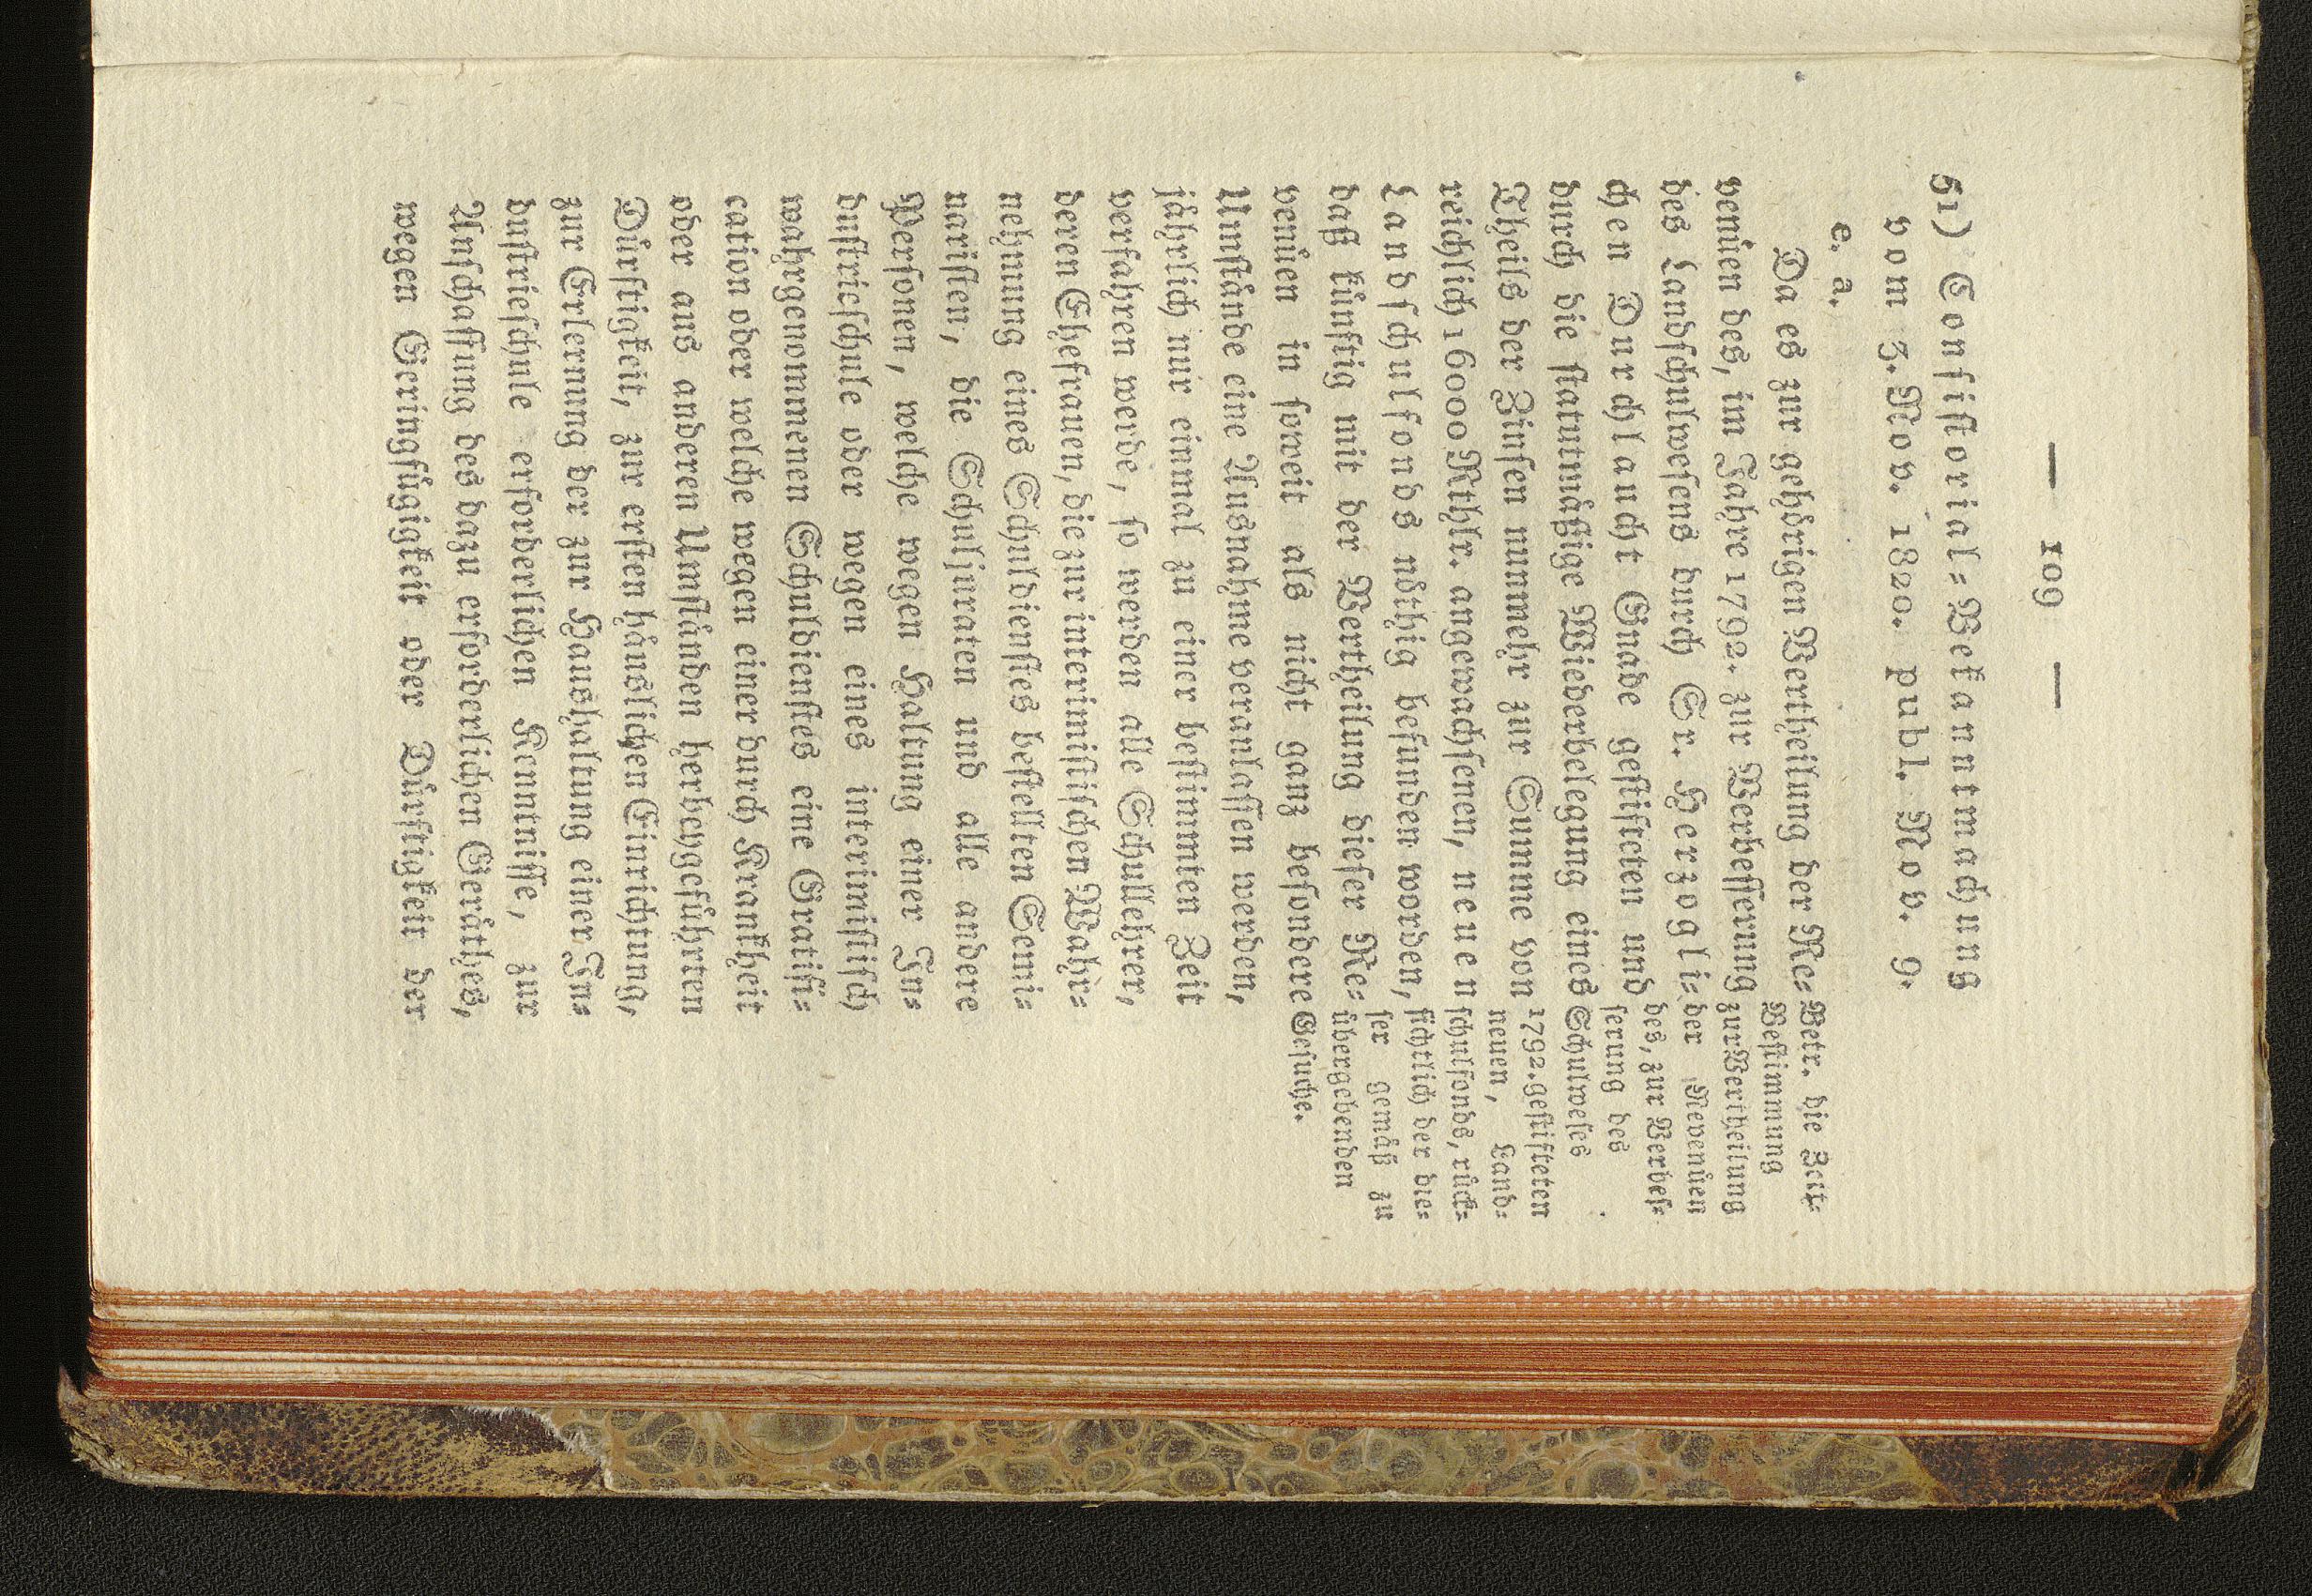 — 109 —
51) Consistorial=Bekanntmachung
vom 3. Nov. 1820. publ. Nov. 9.
e. a.
Da es zur gehörigen Vertheilung der Re=
venüen des, im Jahre 1792. zur Verbesserung
des Landschulwesens durch Sr. Herzogli=
chen Durchlaucht Gnade gestifteten und
durch die statutmäßige Wiederbelegung eines
Theils der Zinsen nunmehr zur Summe von
reichlich 16000 Rthlr. angewachsenen, neuen
Landschulfonds nöthig befunden worden,
daß künftig mit der Vertheilung dieser Re=
venüen in soweit als nicht ganz besondere
Umstände eine Ausnahme veranlassen werden,
jährlich nur einmal zu einer bestimmten Zeit
verfahren werde, so werden alle Schullehrer,
deren Ehefrauen, die zur interimistischen Wahr=
nehmung eines Schuldienstes bestellten Semi=
naristen, die Schuljuraten und alle andere
Personen, welche wegen Haltung einer In=
dustrieschule oder wegen eines interimistisch
wahrgenommenen Schuldienstes eine Gratifi=
cation oder welche wegen einer durch Krankheit
oder aus anderen Umständen herbeygeführten
Dürftigkeit, zur ersten häuslichen Einrichtung,
zur Erlernung der zur Haushaltung einer In=
dustrieschule erforderlichen Kenntnisse, zur
Anschaffung des dazu erforderlichen Geräthes,
wegen Geringfügigkeit oder Dürftigkeit der
Betr. die Zeit=
Bestimmung
zur Vertheilung
der Revenüen
des, zur Verbes=
serung des
Schulwesens
1792. gestifteten
neuen, Land=
schulfonds, rück=
sichtlich der die=
ser gemäß zu
übergebenden
Gesuche.